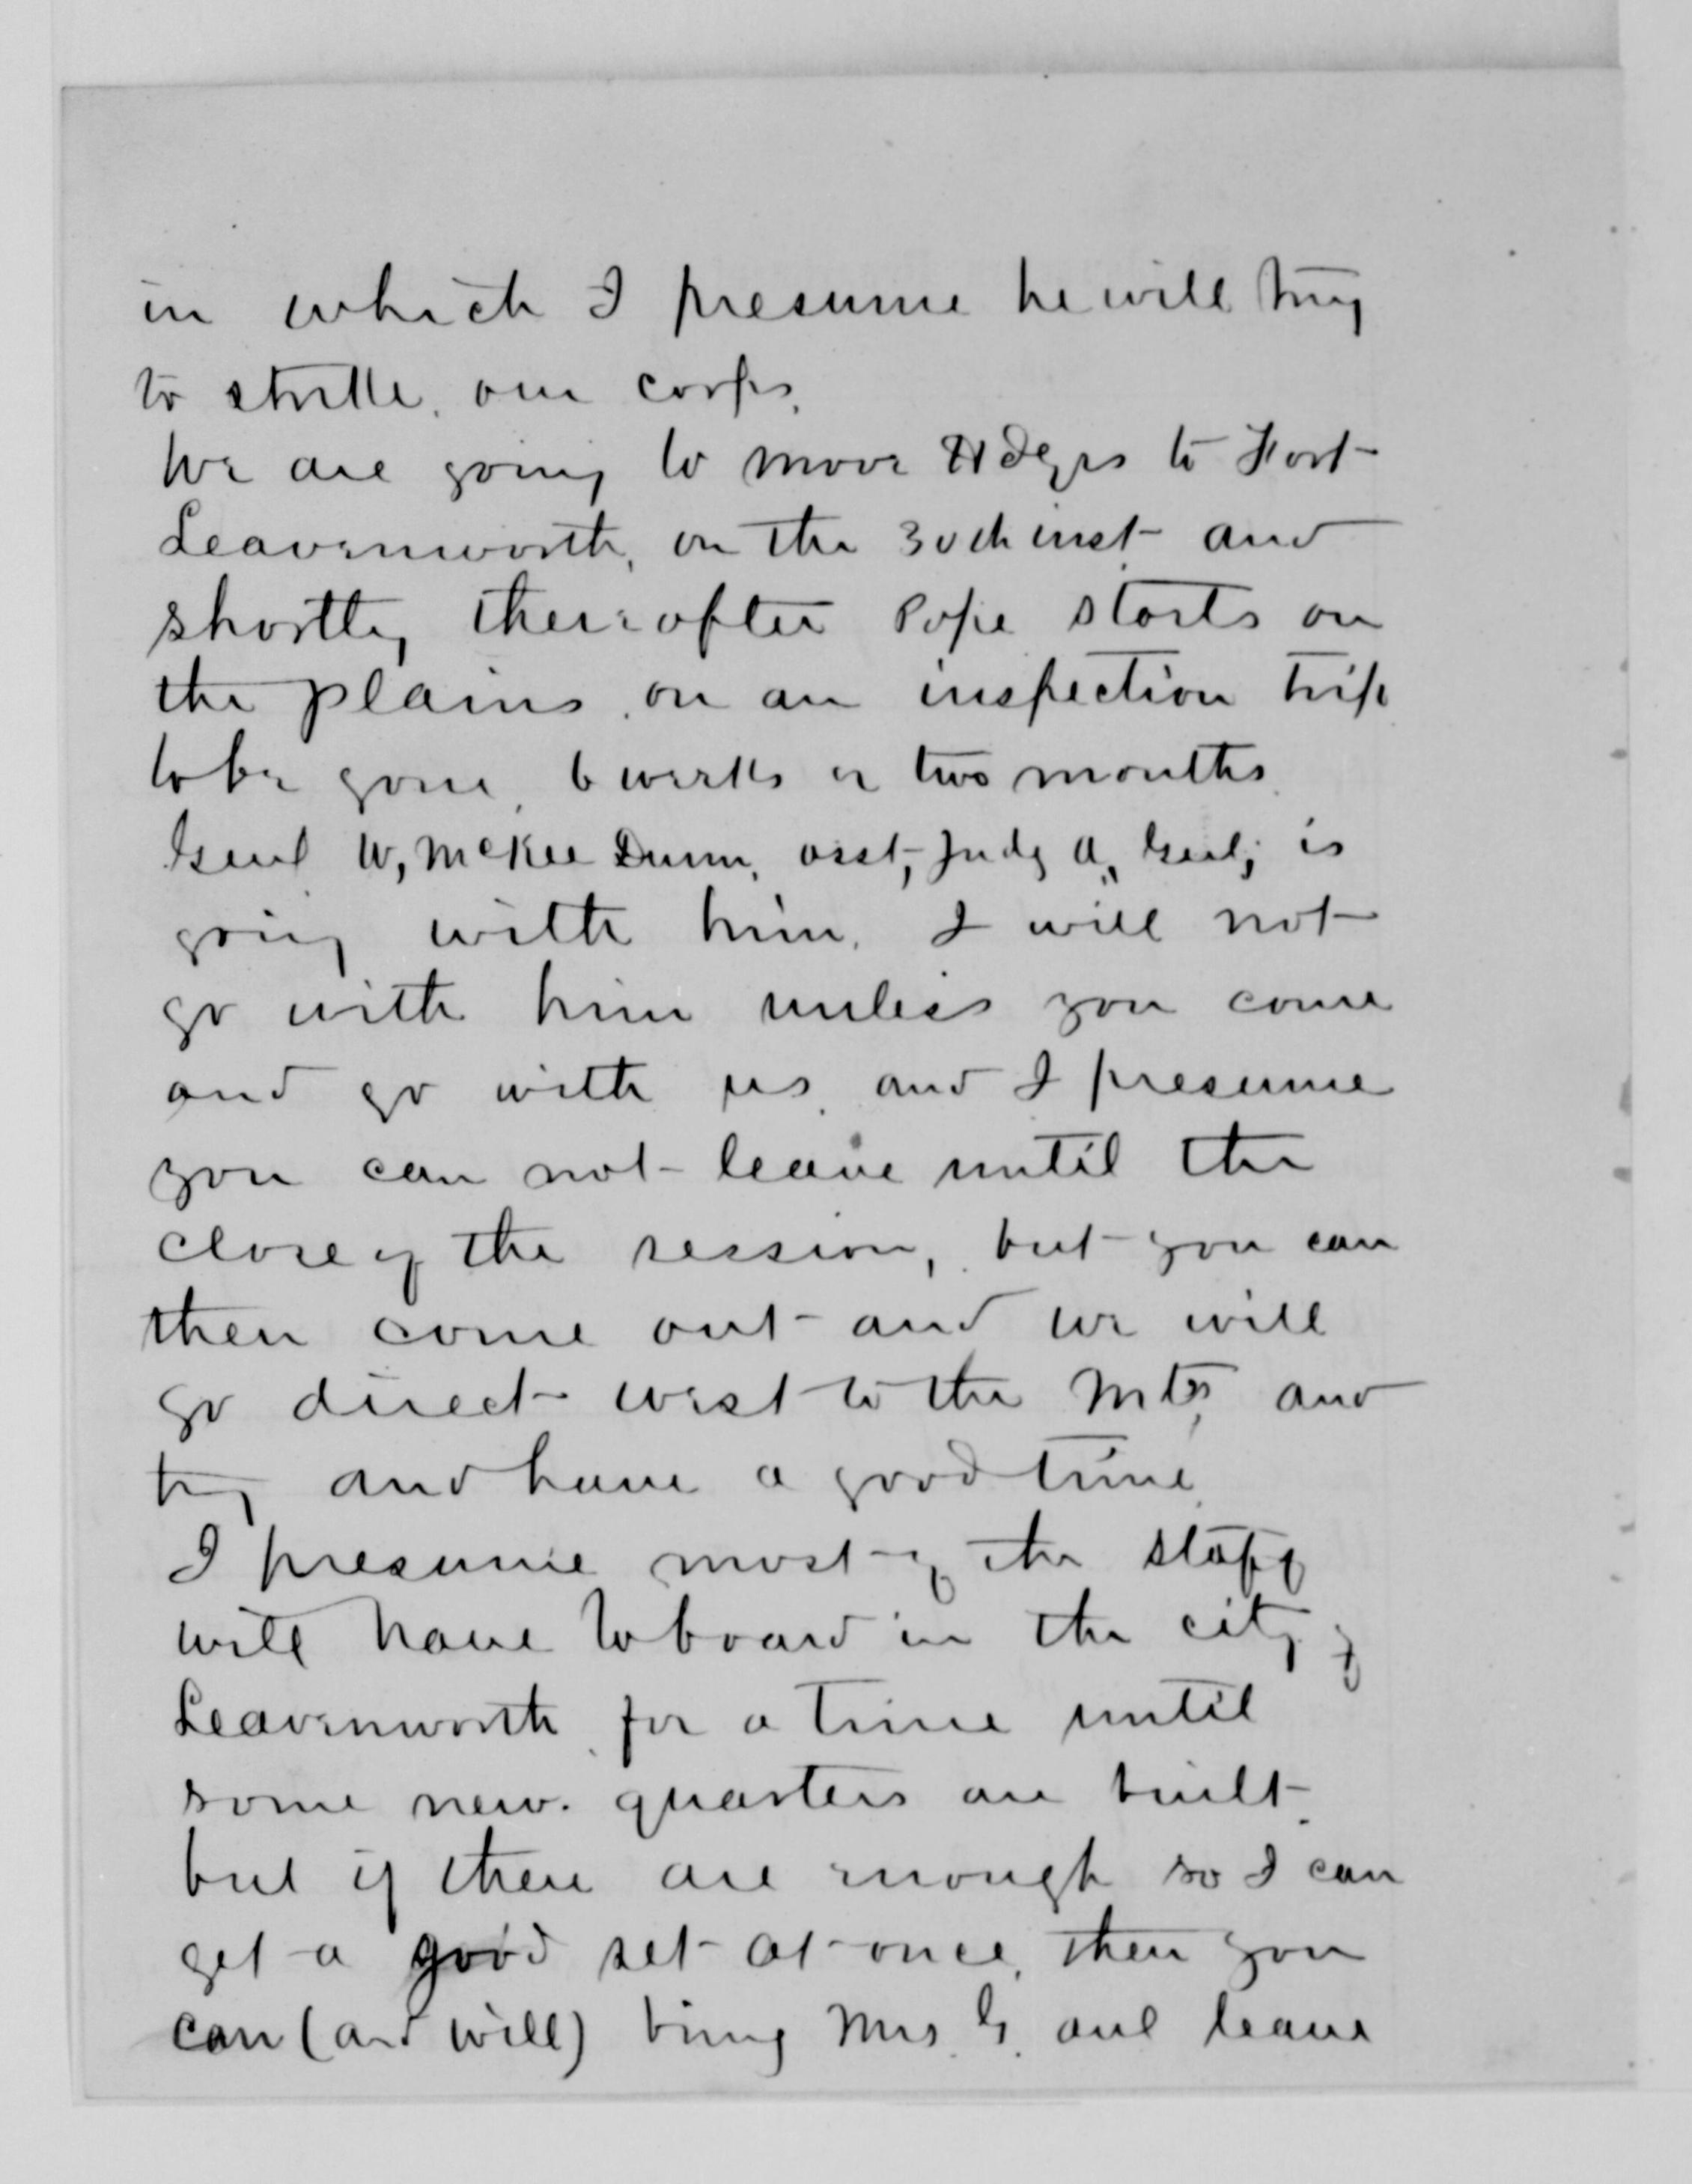 in which I presume he will try
to strike, our corps.
We are going to move Hdqrs to Fort
Leavenworth, on the 30th inst and
shortly thereafter Pope starts on
the plains, on an inspection trip
to be gone, 6 weeks or two months.
Genl W, McKee Dunn, asst, Judg A,, Genl; is
going with him. I will not
go with him unless you come
and go with us, and I presume
you can not leave until the
close of the session, but you can
then come out and we will
go direct west to the Mts, and
try and have a good time.
I presume most of the staff
will have to board in the city of
Leavenworth, for a time until
some new quarters are built.
but if there are enough so I can
get a good set at once, then you
can (and will) bring Mrs. G. and leave